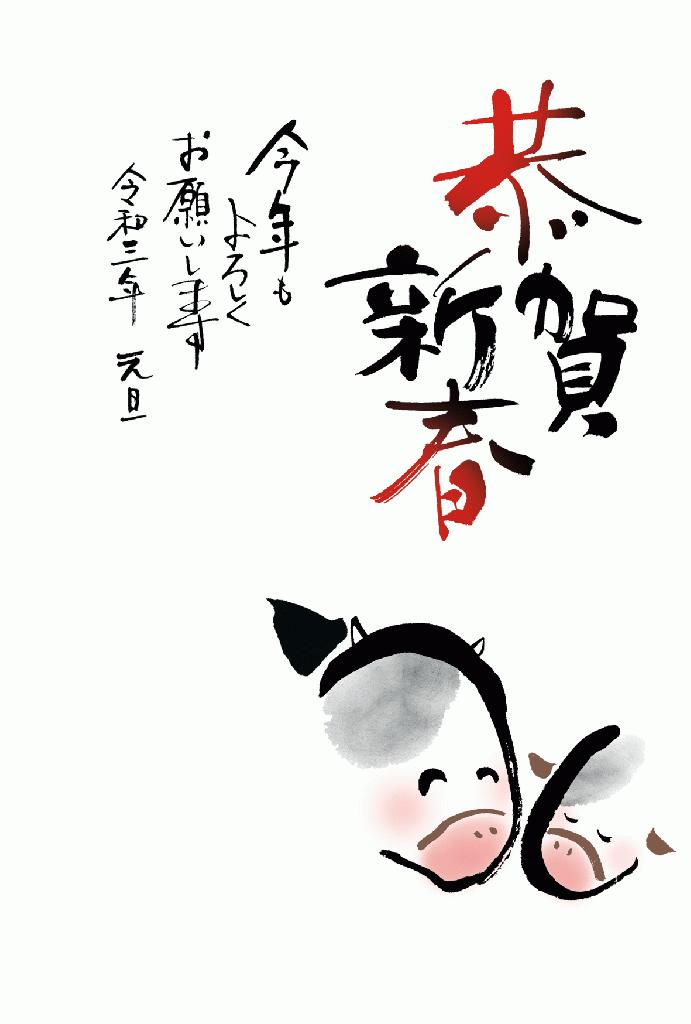 恭賀
新春
今年も
よろしく
お願いします
令和三年 元旦